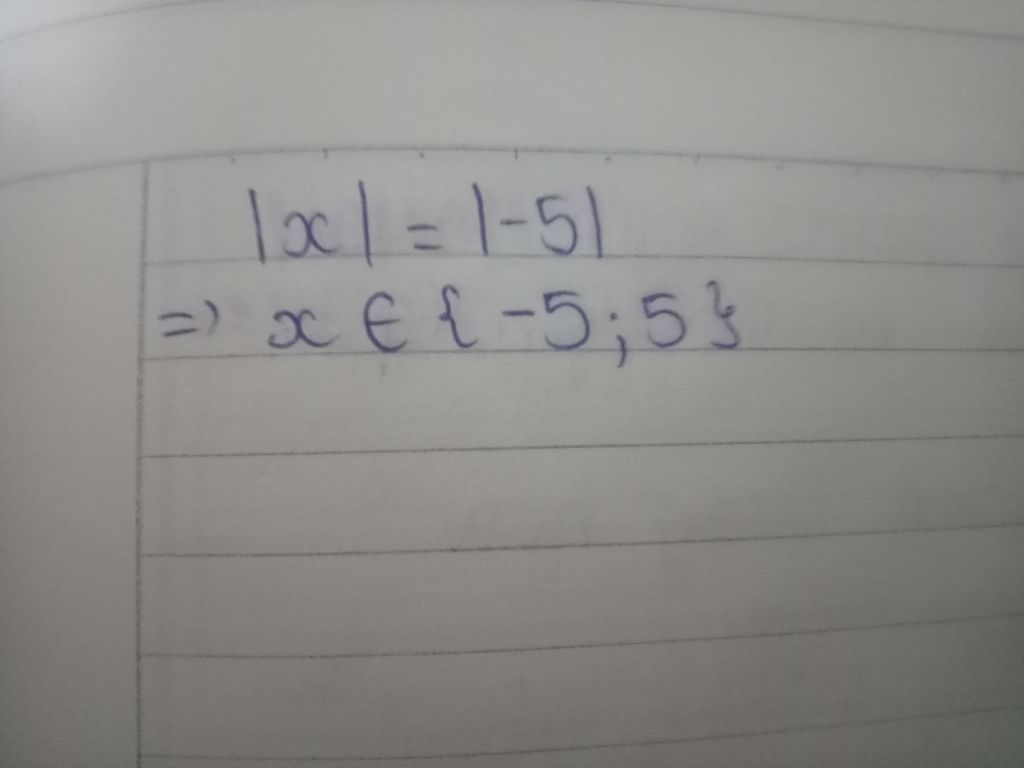 |x| = |-5|
=> x ∈ {-5; 5}